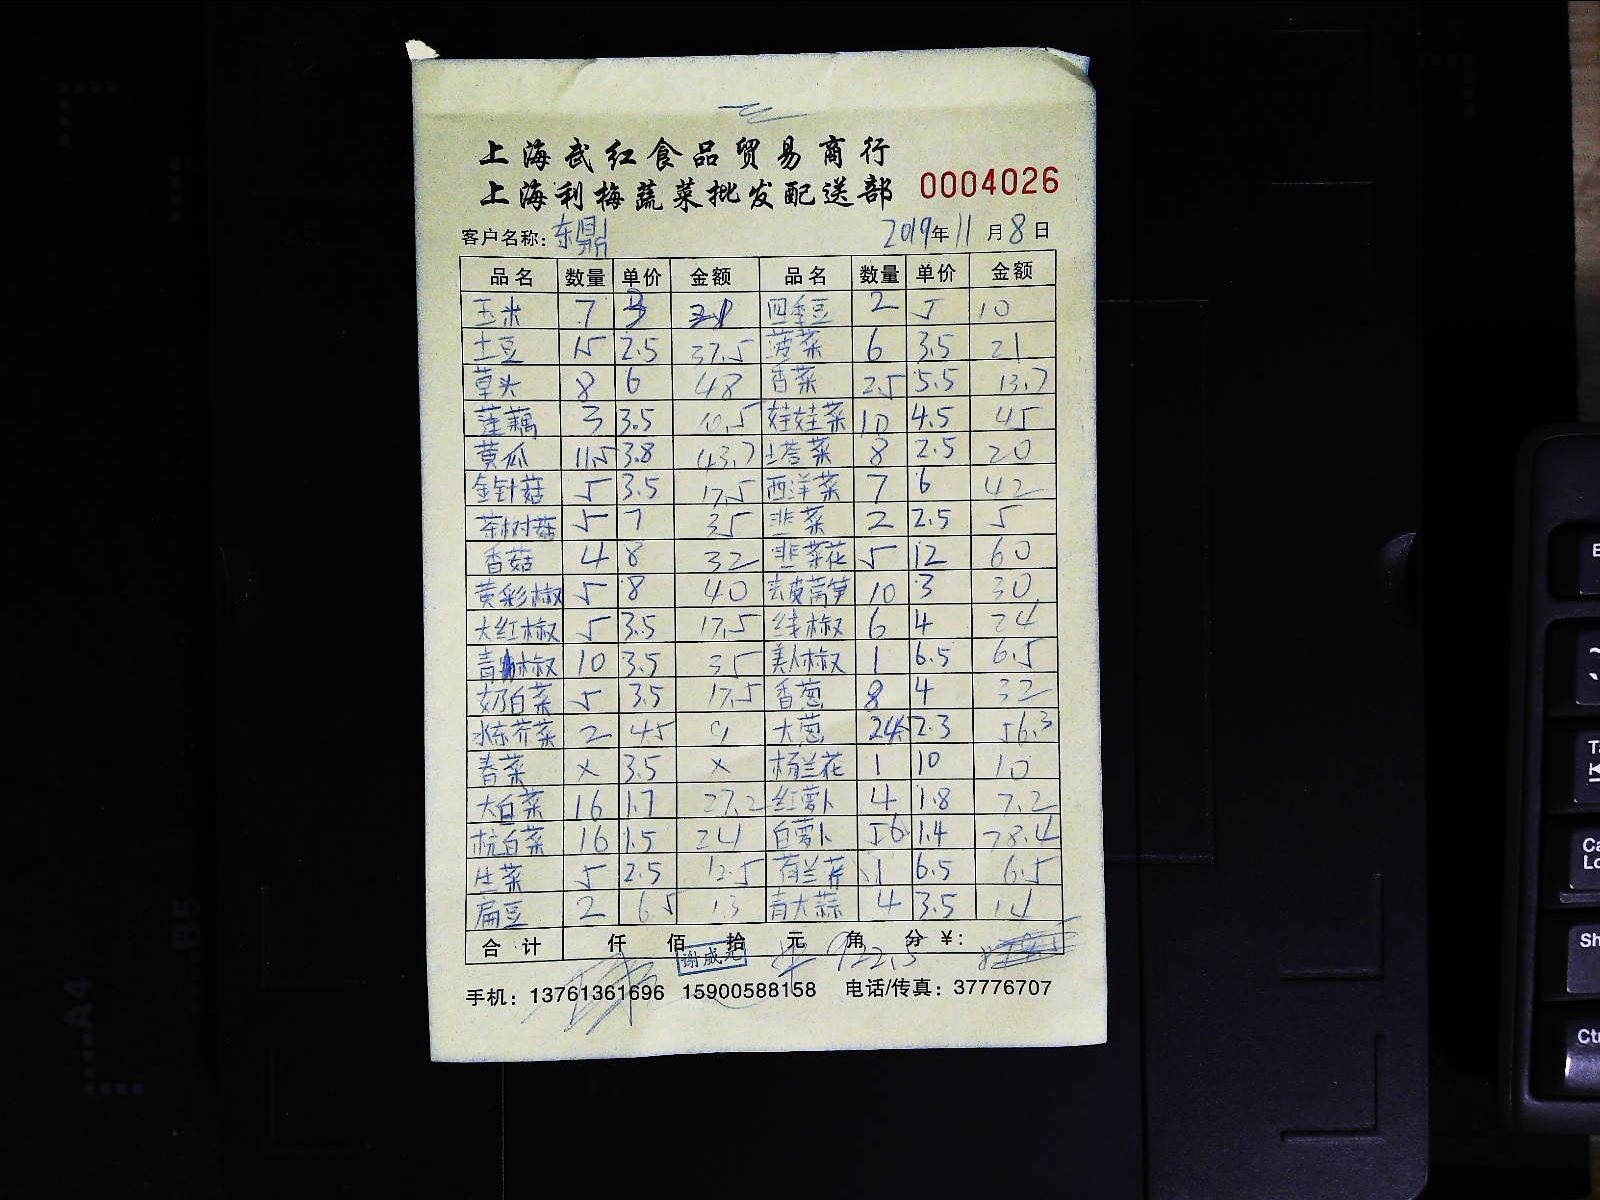 上海武红食品贸易商行
上海利梅蔬菜批发配送部 0004026
客户名称：东鼎 2019年11月8日
品名 数量 单价 金额 品名 数量 单价 金额
玉米 7 3 21 四季豆 2 5 10
土豆 15 2.5 37.5 菠菜 6 3.5 21
草头 8 6 48 香菜 2.5 5.5 13.7
莲藕 3 3.5 10.5 娃娃菜 10 4.5 45
黄瓜 11.5 3.8 43.7 塔菜 8 2.5 20
金针菇 5 3.5 17.5 西洋菜 7 6 42
茶树菇 5 7 35 韭菜 2 2.5 5
香菇 4 8 32 韭菜花 5 12 60
黄彩椒 5 8 40 去皮莴笋 10 3 30
大红椒 5 3.5 17.5 线椒 6 4 24
青椒 10 3.5 35 美人椒 1 6.5 6.5
奶白菜 5 3.5 17.5 香葱 8 4 32
水东芥菜 2 4.5 9 大葱 24.5 2.3 56.3
春菜 × 3.5 × 杨兰花 1 10 10
大白菜 16 1.7 27.2 红萝卜 4 1.8 7.2
杭白菜 16 1.5 24 白萝卜 56 1.4 78.4
生菜 5 2.5 12.5 荷兰芹 1 6.5 6.5
扁豆 2 6.5 13 青大蒜 4 3.5 14
合计 仟 佰 拾 元 角 分 ¥：
谢成光 922.5
手机：13761361696 15900588158 电话/传真：37776707